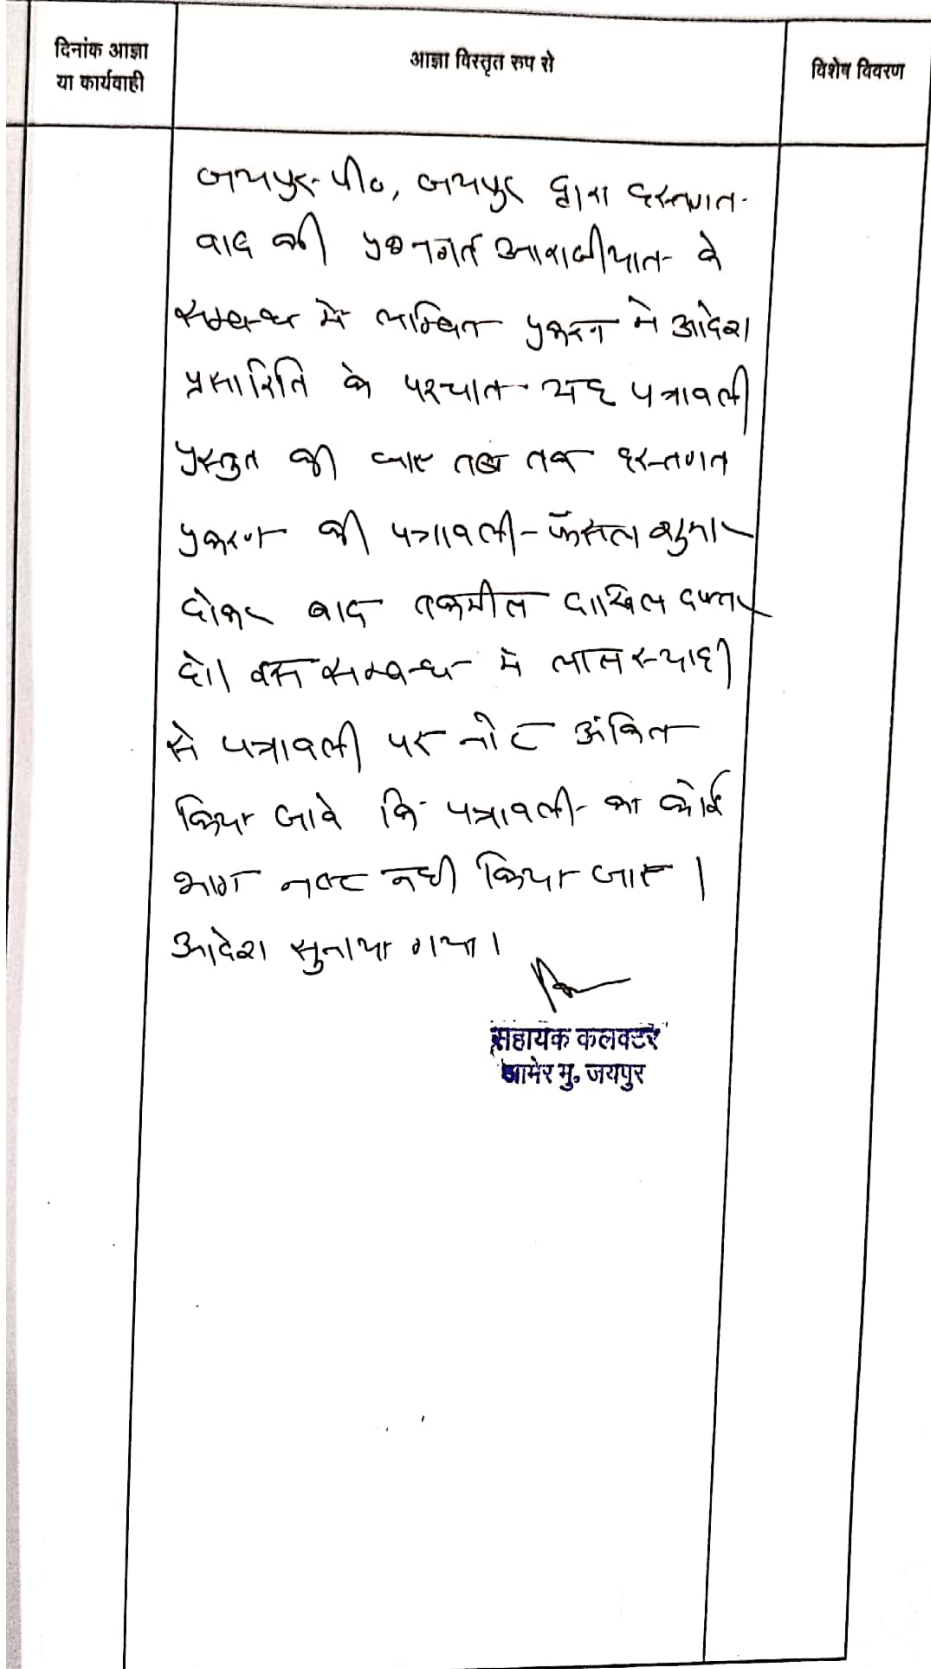 दिनांक आज्ञा
या कार्यवाही
आज्ञा विस्तृत रुप से
विशेष विवरण
जयपुर-पी०, जयपुर द्वारा हस्तगत
वाद की प्रश्नगत आराजीयात के
सम्बन्ध में लम्बित प्रकरण मे आदेश
प्रसारिति के पश्चात यह पत्रावली
प्रस्तुत की जाए तब तक हस्तगत
प्रकरण की पत्रावली फैसल शुमार
होकर बाद तकमील दाखिल दफ्तर
हो। इस सम्बन्ध में लाल स्याही
से पत्रावली पर नोट अंकित
किया जावे कि पत्रावली का कोई
भाग नष्ट नही किया जाए।
आदेश सुनाया गया।
सहायक कलक्टर
आमेर मु. जयपुर